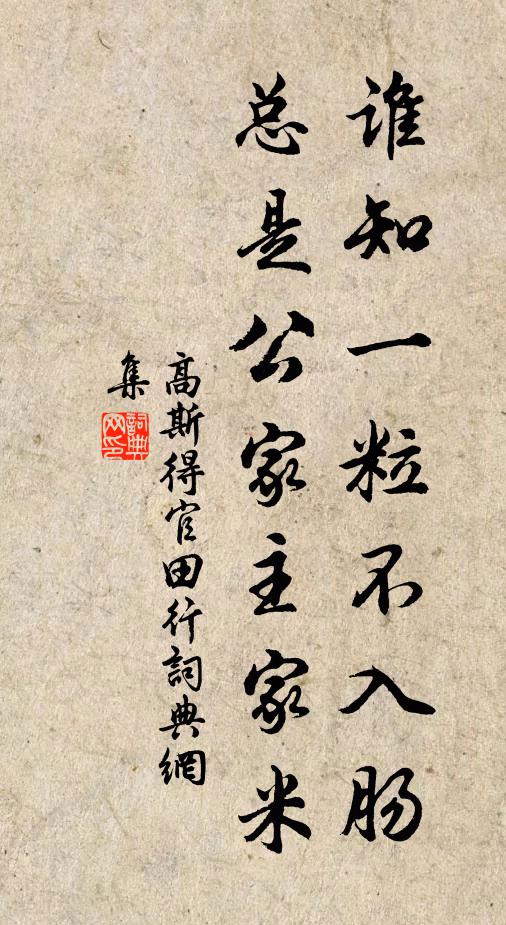 谁知一粒不入肠
总是公家主家米
高斯得官田行詞典網
集
詞典
网印